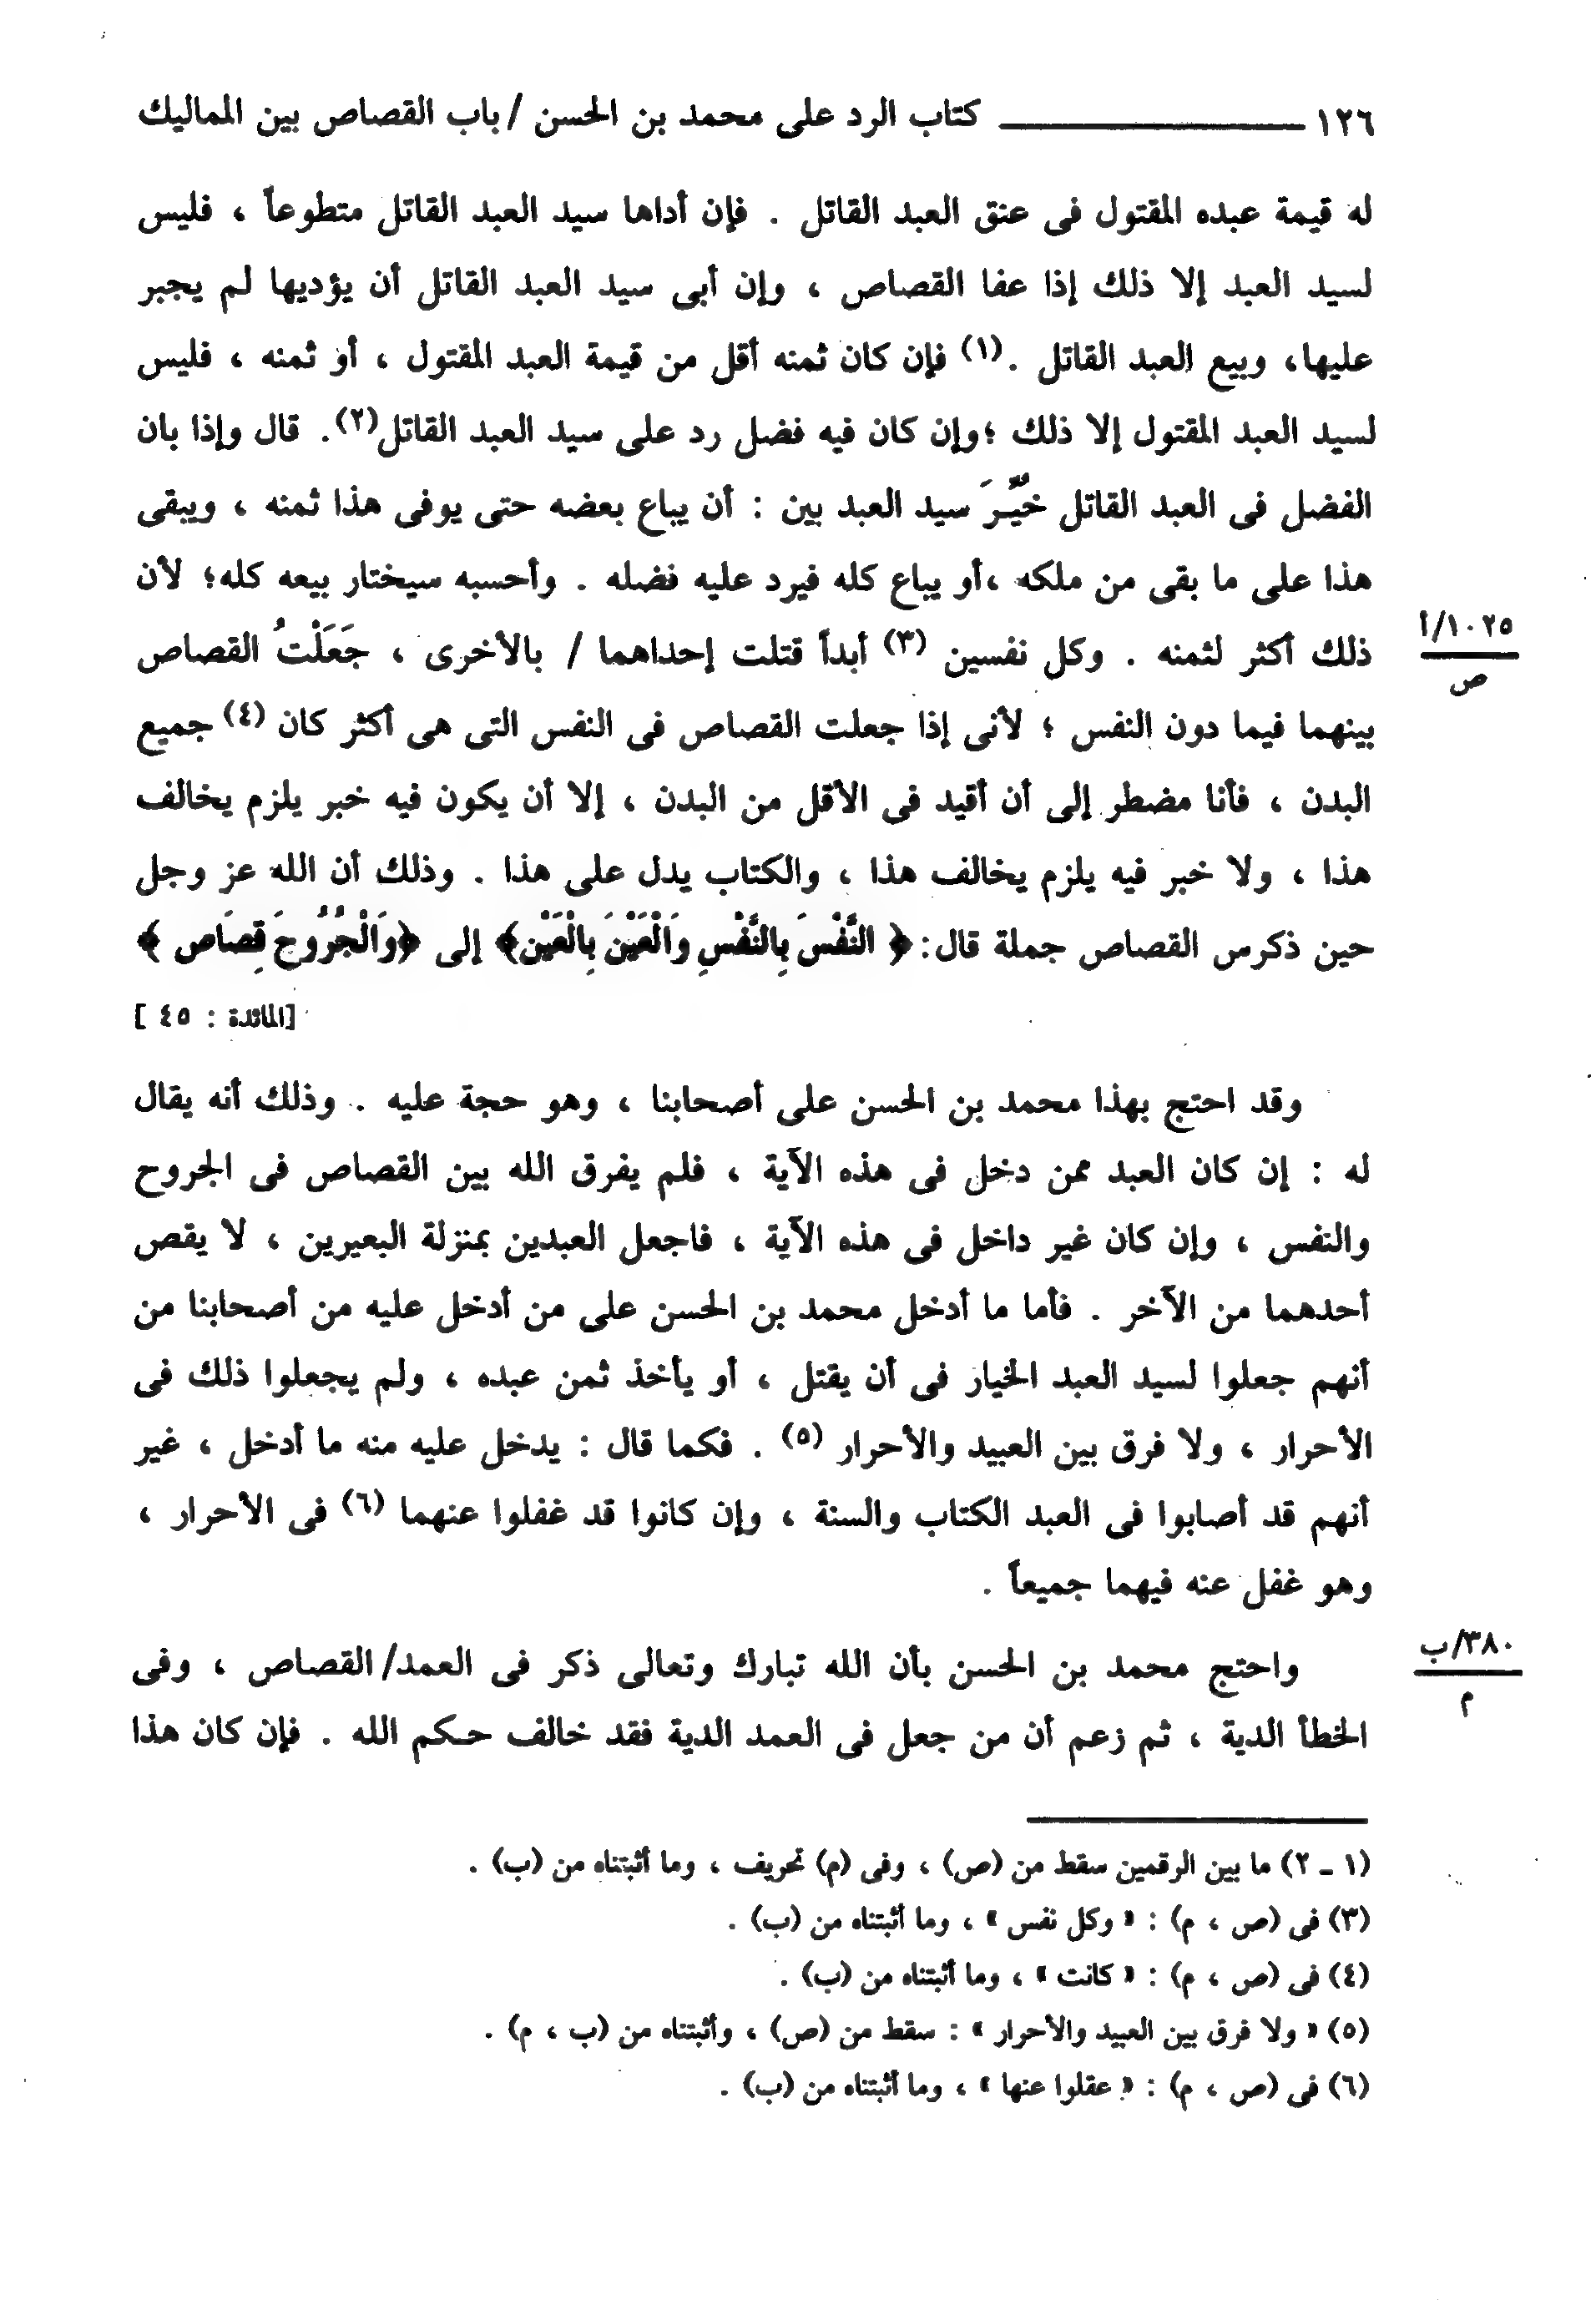 ١٢٦ ــــــــــــ كتاب الرد على محمد بن الحسن / باب القصاص بين المماليك
له قيمة عبده المقتول فى عنق العبد القاتل . فإن أداها سيد العبد القاتل متطوعاً ، فليس
لسيد العبد إلا ذلك إذا عفا القصاص ، وإن أبى سيد العبد القاتل أن يؤديها لم يجبر
عليها، وبيع العبد القاتل .(١) فإن كان ثمنه أقل من قيمة العبد المقتول ، أو ثمنه ، فليس
لسيد العبد المقتول إلا ذلك ؛وإن كان فيه فضل رد على سيد العبد القاتل(٢). قال وإذا بان
الفضل فى العبد القاتل خُيِّـرَ سيد العبد بين : أن يباع بعضه حتى يوفى هذا ثمنه ، ويبقى
هذا على ما بقى من ملكه ،أو يباع كله فيرد عليه فضله . وأحسبه سيختار بيعه كله؛ لأن
ذلك أكثر لثمنه . وكل نفسين (٣) أبداً قتلت إحداهما / بالأخرى ، جَعَلْتُ القصاص
١٠٢٥/أ
ص
بينهما فيما دون النفس ؛ لأنى إذا جعلت القصاص فى النفس التى هى أكثر كان (٤) جميع
البدن ، فأنا مضطر إلى أن أقيد فى الأقل من البدن ، إلا أن يكون فيه خبر يلزم يخالف
هذا ، ولا خبر فيه يلزم يخالف هذا ، والكتاب يدل على هذا . وذلك أن الله عز وجل
حين ذكرس القصاص جملة قال: ﴿ النَّفْسَ بِالنَّفْسِ وَالْعَيْنَ بِالْعَيْنِ﴾ إلى ﴿وَالْجُرُوحَ قِصَاص ﴾
[المائدة : ٤٥ ]
وقد احتج بهذا محمد بن الحسن على أصحابنا ، وهو حجة عليه . وذلك أنه يقال
له : إن كان العبد ممن دخل فى هذه الآية ، فلم يفرق الله بين القصاص فى الجروح
والنفس ، وإن كان غير داخل فى هذه الآية ، فاجعل العبدين بمنزلة البعيرين ، لا يقص
أحدهما من الآخر . فأما ما أدخل محمد بن الحسن على من أدخل عليه من أصحابنا من
أنهم جعلوا لسيد العبد الخيار فى أن يقتل ، أو يأخذ ثمن عبده ، ولم يجعلوا ذلك فى
الأحرار ، ولا فرق بين العبيد والأحرار (٥) . فكما قال : يدخل عليه منه ما أدخل ، غير
أنهم قد أصابوا فى العبد الكتاب والسنة ، وإن كانوا قد غفلوا عنهما (٦) فى الأحرار ،
وهو غفل عنه فيهما جميعاً .
واحتج محمد بن الحسن بأن الله تبارك وتعالى ذكر فى العمد/ القصاص ، وفى
٣٨٠/ب
م
الخطأ الدية ، ثم زعم أن من جعل فى العمد الدية فقد خالف حـكم الله . فإن كان هذا
(١ ـ ٢) ما بين الرقمين سقط من (ص) ، وفى (م) تحريف ، وما أثبتناه من (ب) .
(٣) فى (ص ، م) : « وكل نفس » ، وما أثبتناه من (ب) .
(٤) فى (ص ، م) : « كانت » ، وما أثبتناه من (ب) .
(٥) « ولا فرق بين العبيد والأحرار » : سقط من (ص) ، وأثبتناه من (ب ، م) .
(٦) فى (ص ، م) : « عقلوا عنها » ، وما أثبتناه من (ب) .